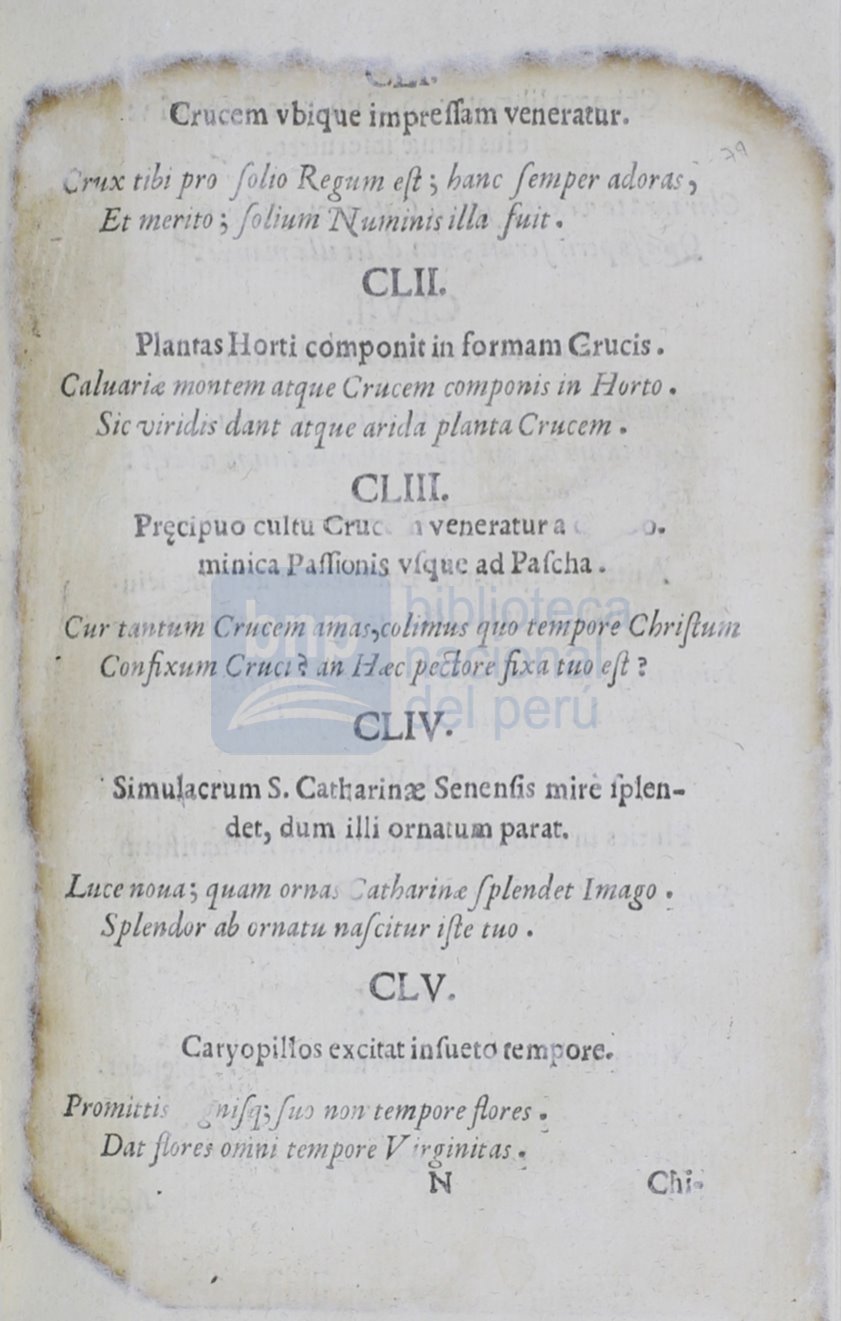 CLI.
Crucem vbique impreſſam veneratur.
79
Crux tibi pro ſolio Regum eſt; hanc ſemper adoras,
Et merito; ſolium Numinis illa fuit.
CLII.
Plantas Horti componit in formam Crucis.
Caluariæ montem atque Crucem componis in Horto.
Sic viridis dant atque arida planta Crucem.
CLIII.
Pręcipuo cultu veneratur a
minica Paſſionis vſque ad Paſcha.
Cur tantum Crucem amas, colimus quo tempore Chriſtum
Confixum Cruci? an Hæc pectore fixa tuo eſt?
bnp biblioteca
nacional
del perú
CLIV.
Simulacrum S. Catharinæ Senenſis mirè ſplen-
det, dum illi ornatum parat.
Luce noua; quam ornas Catharinæ ſplendet Imago.
Splendor ab ornatu naſcitur iſte tuo.
CLV.
Caryopillos excitat inſueto tempore.
Promittis ſuo non tempore flores.
Dat flores omni tempore Virginitas.
N Chi-